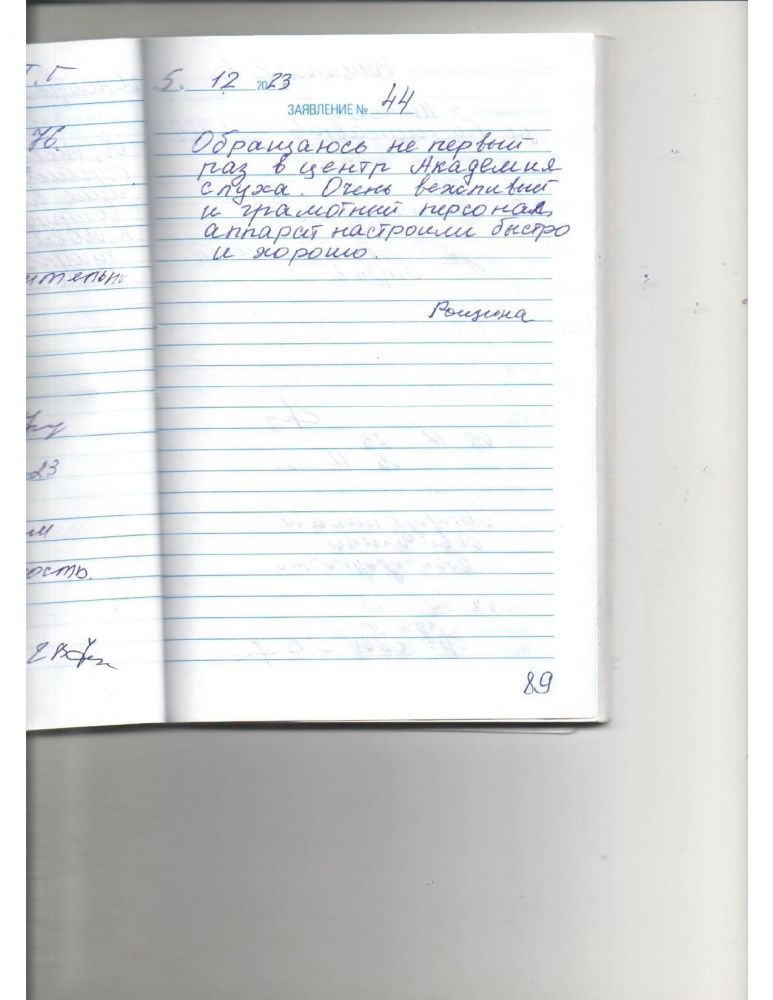 5. 12 2023
ЗАЯВЛЕНИЕ № 44
Обращаюсь не первый
раз в центр Академия
слуха. Очень вежливый
и грамотный персонал,
аппарат настроили быстро
и хорошо.
Рощина
89
Т.Г
76.
ительно
23
м
ость.